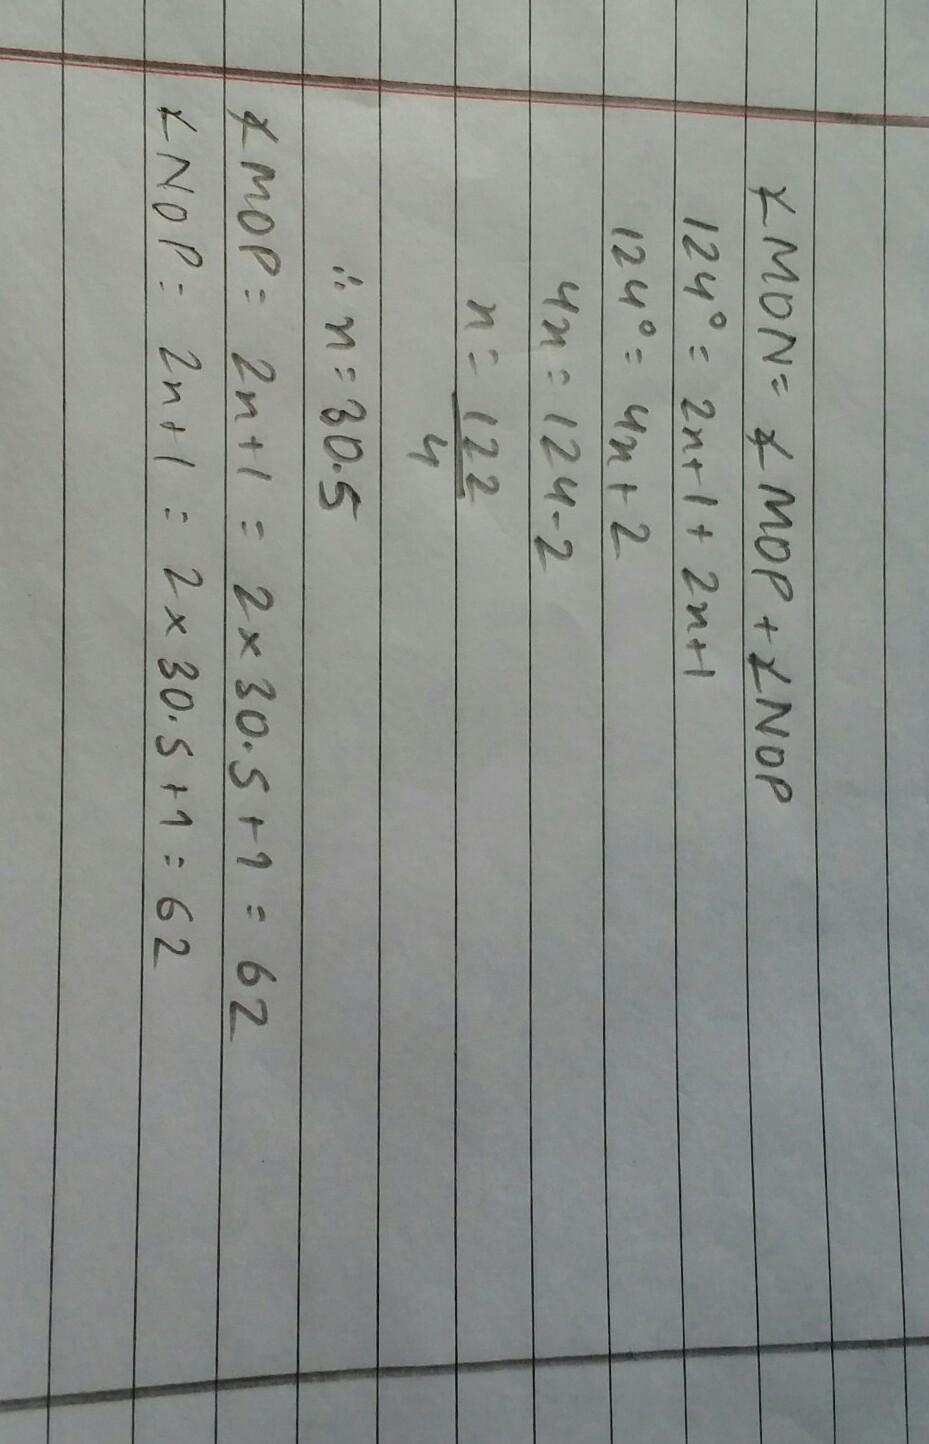 ∡MON = ∡MOP + ∡NOP
124° = 2n+1 + 2n+1
124° = 4n + 2
4n = 124 - 2
n = 122
4
∴ n = 30.5
∡MOP = 2n+1 = 2 × 30.5 + 1 = 62
∡NOP = 2n+1 = 2 × 30.5 + 1 = 62